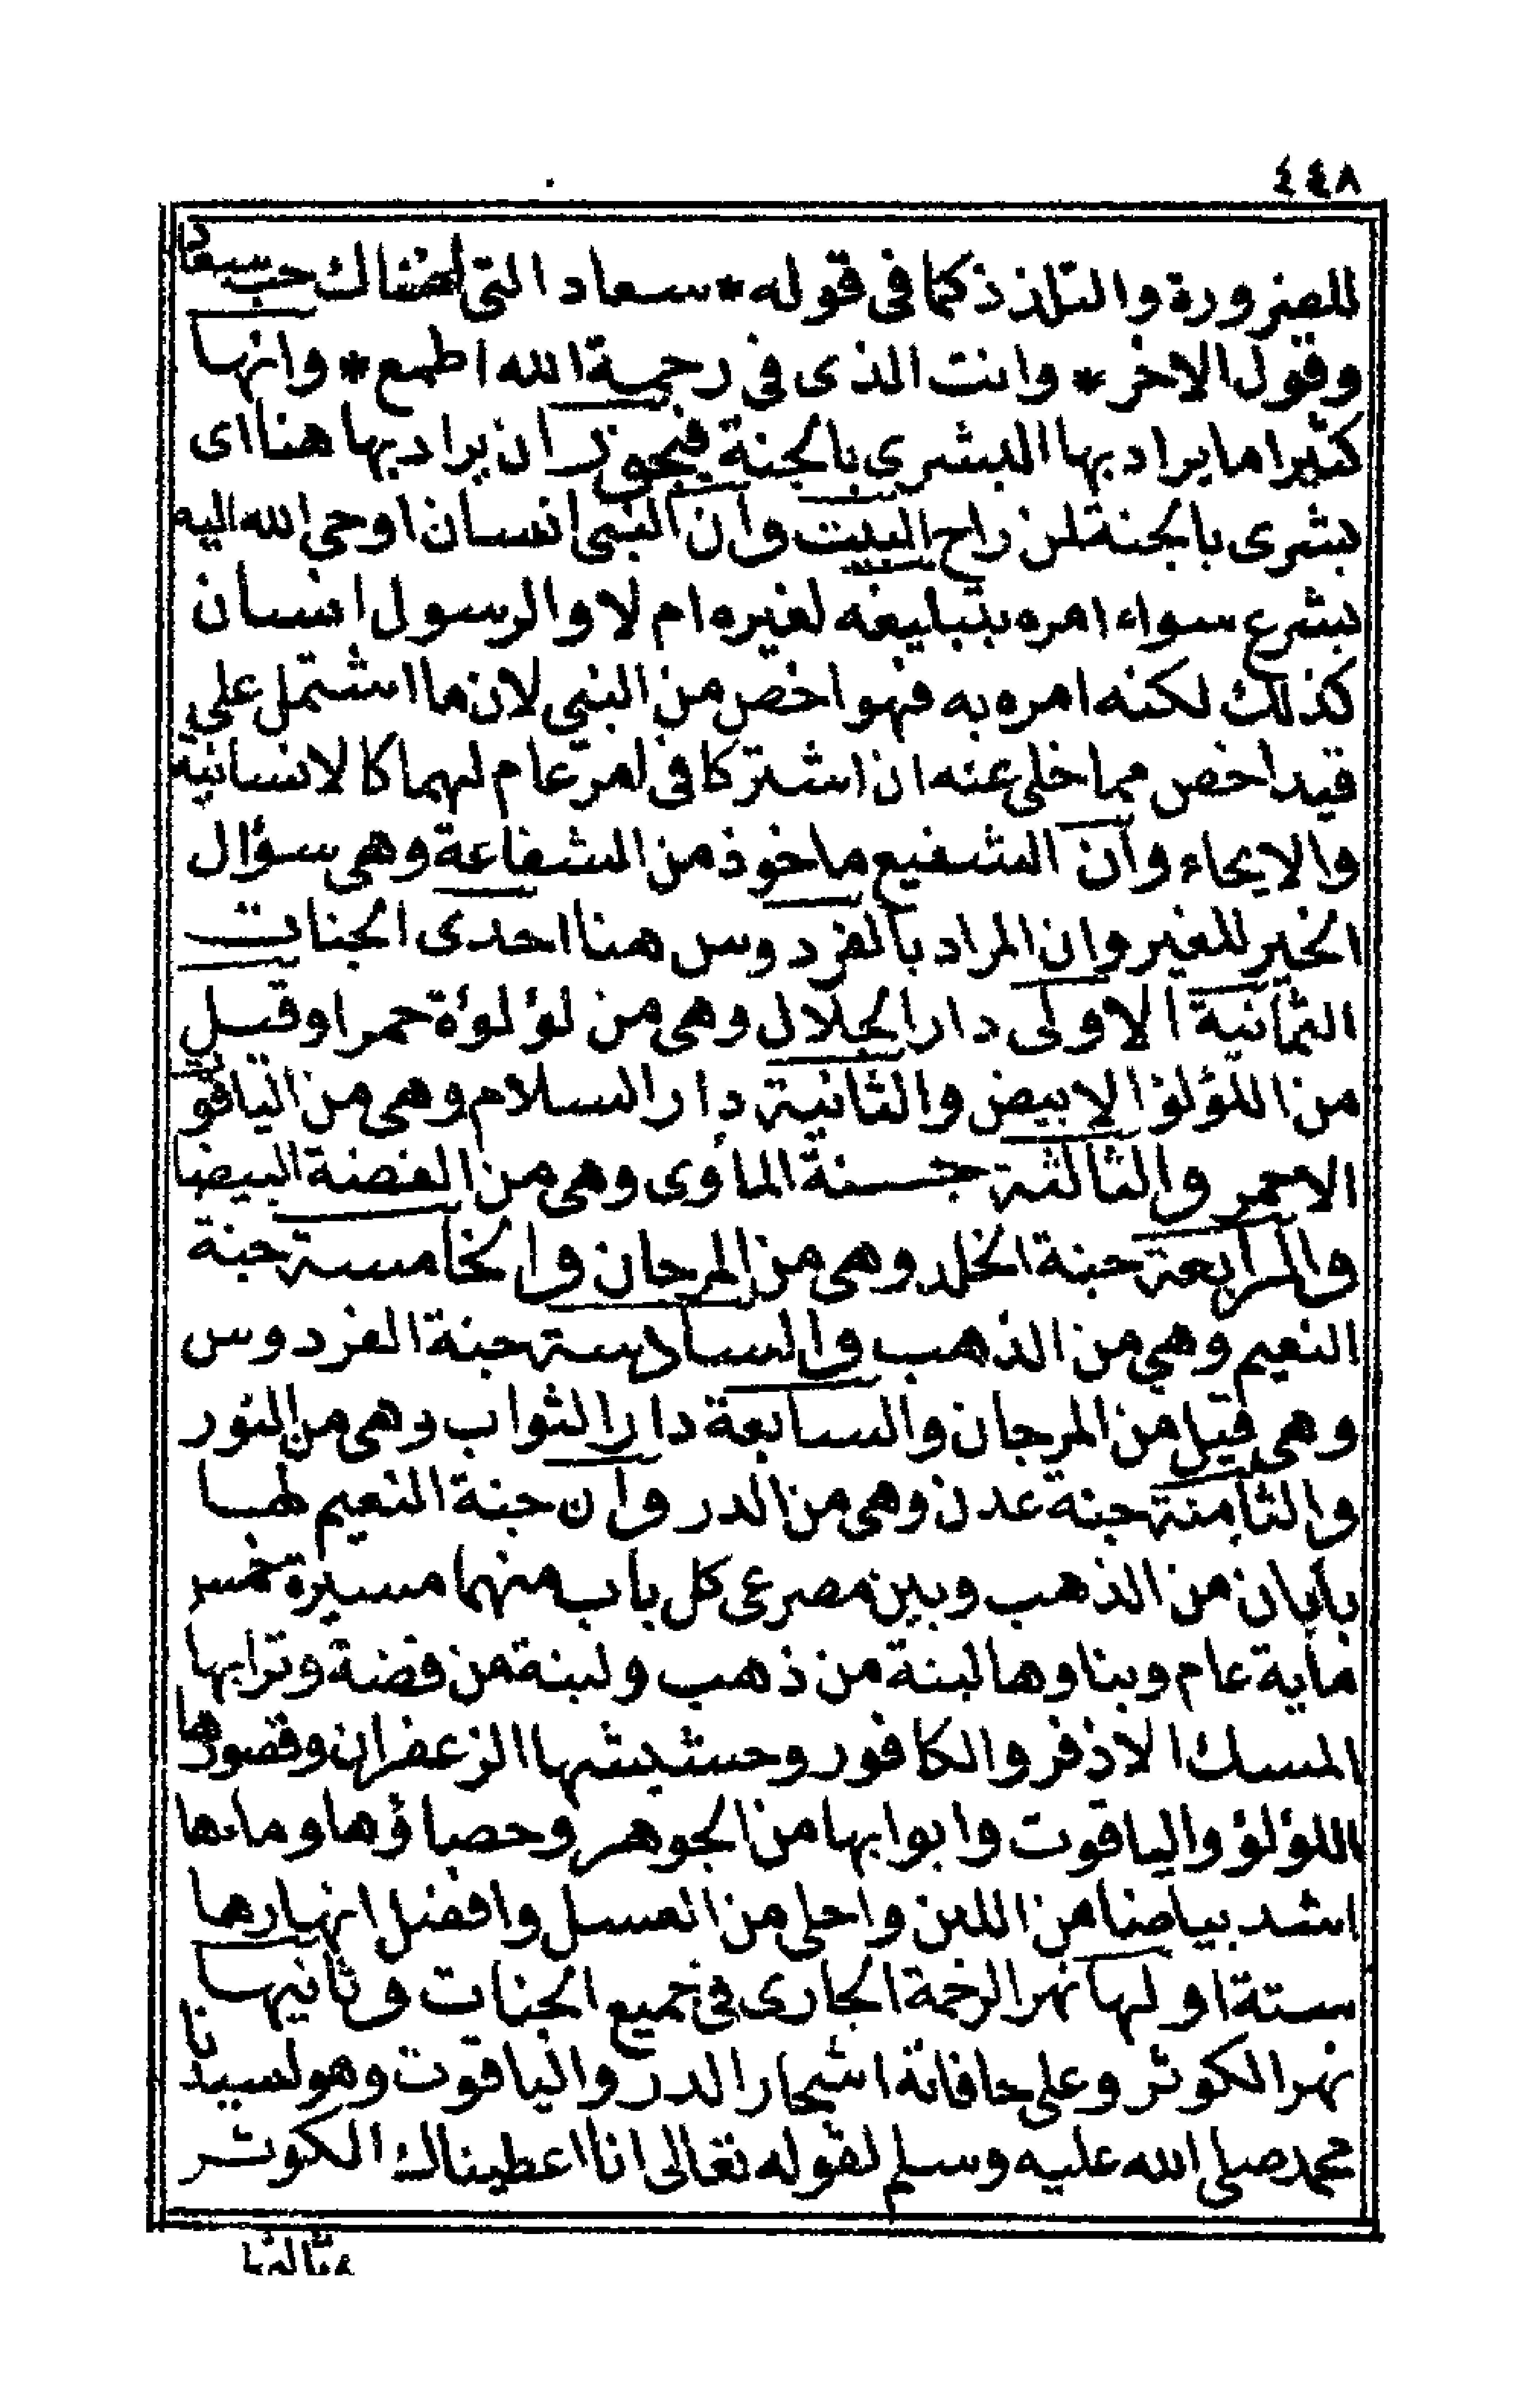 ٤٤٨
للضرورة والتلذذ كما فى قوله * سعاد التى اضناك حب سعاد
وقول الاخر * وانت الذى فى رحمة الله اطمع * وانها
كثيرا ما يراد بها البشرى بالجنة فيجوز ان يراد بها هنا اى
بشرى بالجنة لمن راح البيت وان النبى انسان اوحى الله اليه
بشرع سواء امره بتبليغه لغيره ام لا والرسول انسان
كذلك لكنه امره به فهو اخص من النبى لان ما اشتمل على
قيد اخص مما خلى عنه ان اشتركا فى امر عام لهما كالانسانية
والايحاء وان الشفيع ماخوذ من الشفاعة وهى سؤال
الخير للغير وان المراد بالفردوس هنا احدى الجنات
الثمانية الاولى دار الجلال وهى من لؤلؤة حمرا وقيل
من اللؤلؤ الابيض والثانية دار السلام وهى من الياقوت
الاحمر والثالثة جنة المأوى وهى من الفضة البيضا
والرابعة جنة الخلد وهى من المرجان والخامسة جنة
النعيم وهى من الذهب والسادسة جنة الفردوس
وهى قيل من المرجان والسابعة دار الثواب وهى من النور
والثامنة جنة عدن وهى من الدر وان جنة النعيم لها
بابان من الذهب وبين مصرعى كل باب منهما مسيرة خمس
ماية عام وبناوها لبنة من ذهب ولبنة من فضة وترابها
المسك الاذفر والكافور وحشيشها الزعفران وقصورها
اللؤلؤ والياقوت وابوابها من الجوهر وحصباؤها وماءها
اشد بياضا من اللبن واحلى من العسل وافضل انهارها
ستة اولها نهر الرحمة الجارى فى جميع الجنات وثانيها
نهر الكوثر وعلى حافاته اشجار الدر والياقوت وهو لسيدنا
محمد صلى الله عليه وسلم لقوله تعالى انا اعطيناك الكوثر
وثالثها